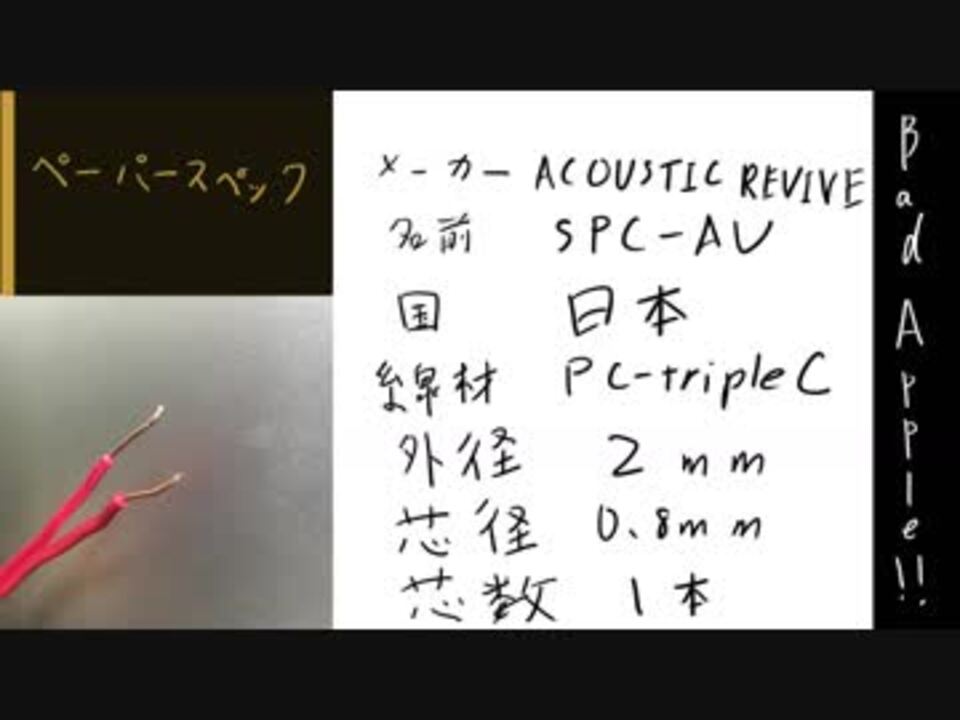 ペーパースペック
メーカー ACOUSTIC REVIVE
名前 SPC-AV
国 日本
線材 PC-tripleC
外径 2mm
芯径 0.8mm
芯数 1本
Bad Apple!!.